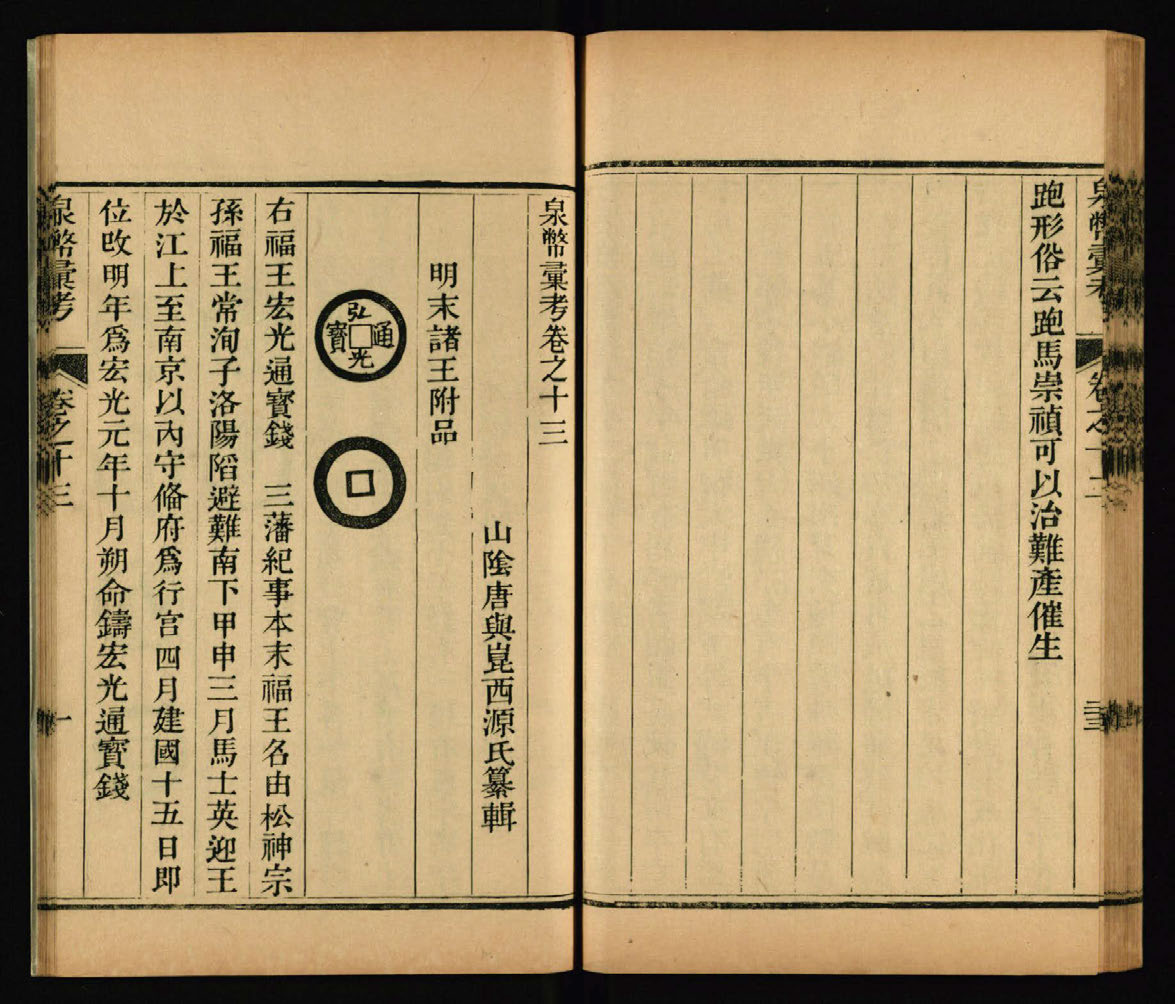 泉幣彙考
卷之十二
三三
跑形俗云跑馬崇禎可以治難產催生
泉幣彙考卷之十三
山陰唐與崑西源氏纂輯
明末諸王附品
弘光通寶
右福王宏光通寶錢 三藩紀事本末福王名由松神宗
孫福王常洵子洛陽陷避難南下甲申三月馬士英迎王
於江上至南京以內守俻府爲行宮四月建國十五日即
位改明年爲宏光元年十月朔命鑄宏光通寶錢
泉幣彙考
卷之十三
一